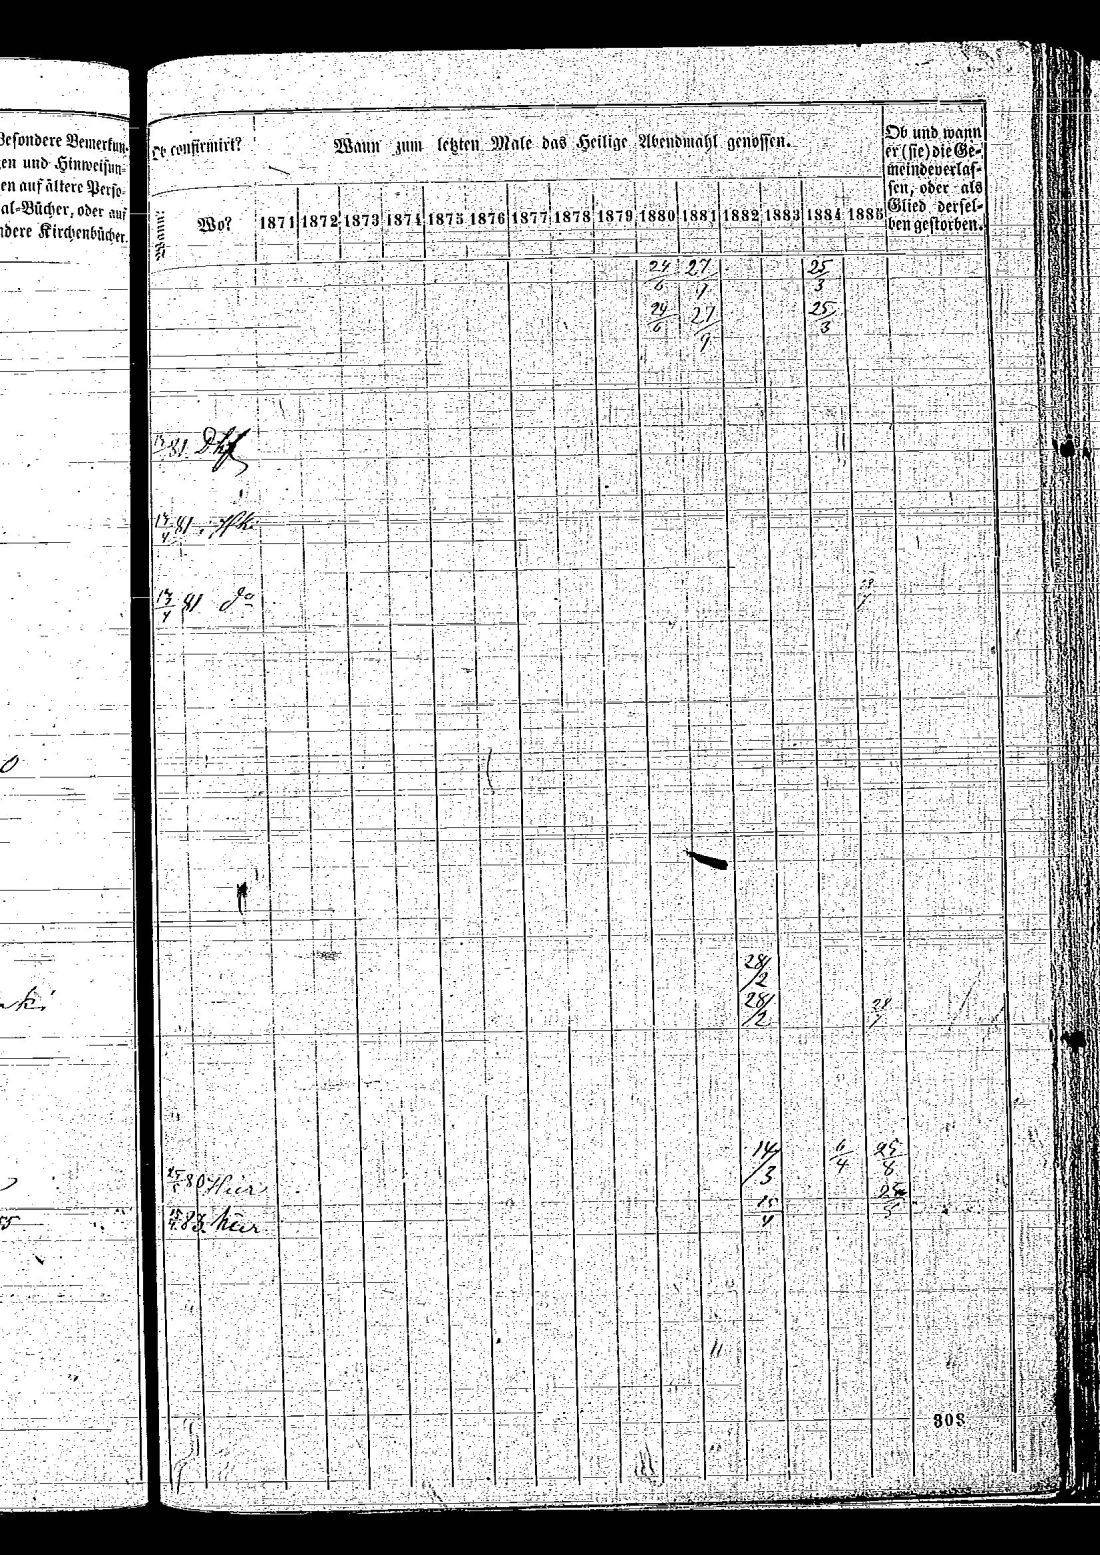 Besondere Bemerkun-
gen und Hinweisun-
en auf ältere Perso-
al-Bücher, oder auf
ndere Kirchenbücher.
Ob confirmirt?
Wo?
Wann zum letzten Male das Heilige Abendmahl genossen.
1871 1872 1873 1874 1875 1876 1877 1878 1879 1880 1881 1882 1883 1884 1885
Ob und wann
er (sie) die Ge-
meindeverlas-
sen, oder als
Glied dersel-
ben gestorben.
24/6 27/9 25/3
24/6 27/9 25/3
81
81
81 do
0
28/2
28/2
14/3 6/4 25/8
80 Hier
15/4 25/5
83 hier
55
308